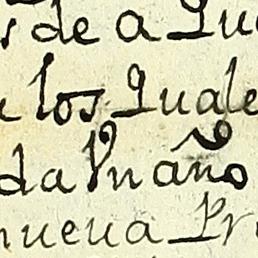 s de a Qu
los Quale
da Vn año
nueua Pr